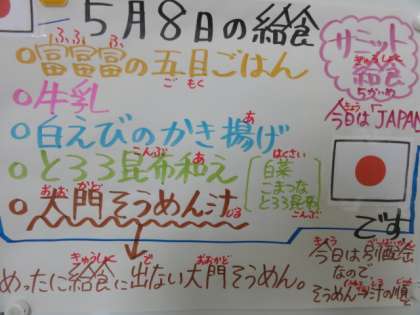 5月8日の給食
富富富の五目ごはん
ふふふ
ごもく
牛乳
白えびのかき揚げ
あ
とろろ昆布和え
こんぶ あ
白菜
はくさい
こまつな
とろろ昆布
こんぶ
大門そうめん汁
おおかど じる
めったに給食に出ない大門そうめん。
きゅうしょく で おおかど
サミット
給食
きゅうしょく
5かいめ
今日は「JAPAN
きょう
です
今日は別配缶
きょう
なので
そうめん→汁の順で